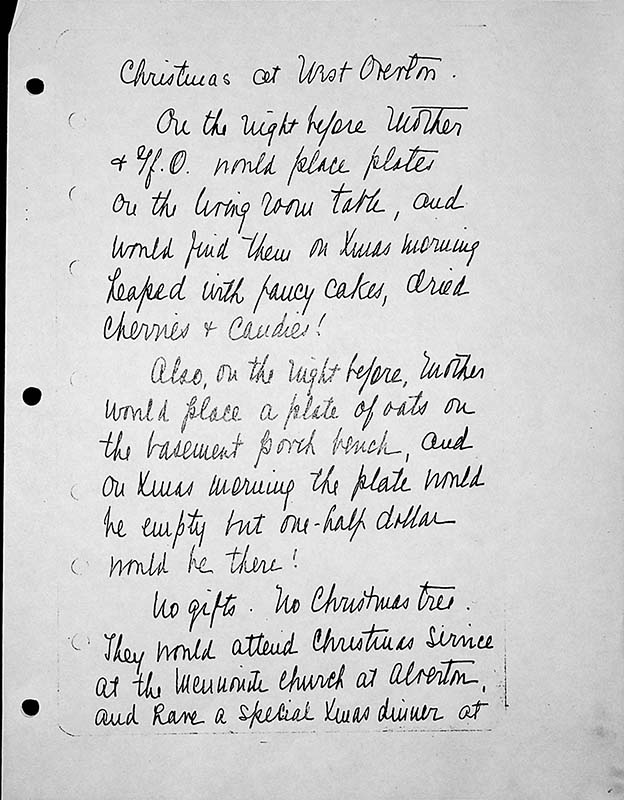 Christmas at West Overton.
On the night before Mother
& H.O. would place plates
on the living room table, and
would find them on Xmas morning
heaped with fancy cakes, dried
cherries & candies!
Also, on the night before, Mother
would place a plate of oats on
the basement porch bench, and
on Xmas morning the plate would
be empty but one-half dollar
would be there!
No gifts. No Christmas tree.
They would attend Christmas service
at the Mennonite church at Alverton,
and have a special Xmas dinner at